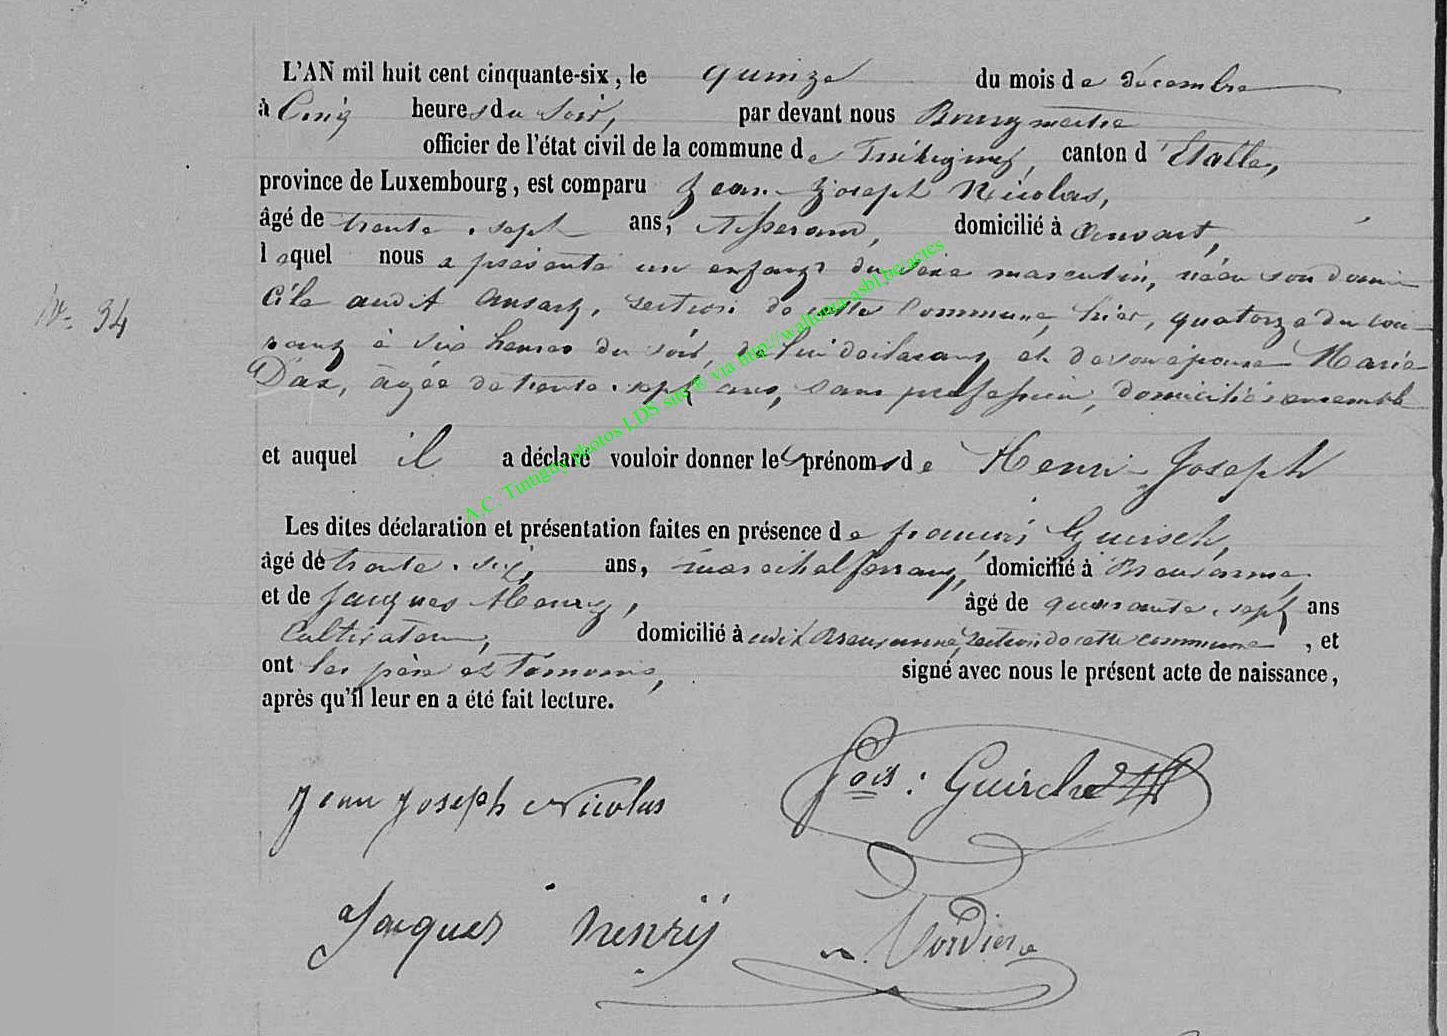 L'AN mil huit cent cinquante-six, le quinze du mois de décembre
à Cinq heures du soir, par devant nous Bourgmestre
officier de l'état civil de la commune de Tintigny, canton d'Etalle,
province de Luxembourg, est comparu Jean-Joseph Nicolas,
âgé de trente-sept ans, tisserand, domicilié à Ansart,
lequel nous a présenté un enfant du sexe masculin, né en son domi
cile audit Ansart, section de cette Commune, hier, quatorze du cou-
rant à six heures du soir, de lui déclarant et de son épouse Marie
Dax, âgée de trente-sept ans, sans profession, domiciliés ensemble
N°. 34
et auquel il a déclaré vouloir donner les prénoms de Henri-Joseph
Les dites déclaration et présentation faites en présence de françois Guirsch,
âgé de trente-six, ans, maréchal ferrant, domicilié à Breuvanne
et de Jacques Henry, âgé de quarante-sept ans
Cultivateur, domicilié à audit Breuvanne, section de cette commune, et
ont les père et Témoins, signé avec nous le présent acte de naissance,
après qu'il leur en a été fait lecture.
Jean Joseph Nicolas
Fçois: Guirsch
Jacques henrÿ
A.C. Tintigny photos LDS site © via http://wallonia-asbl.be/actes